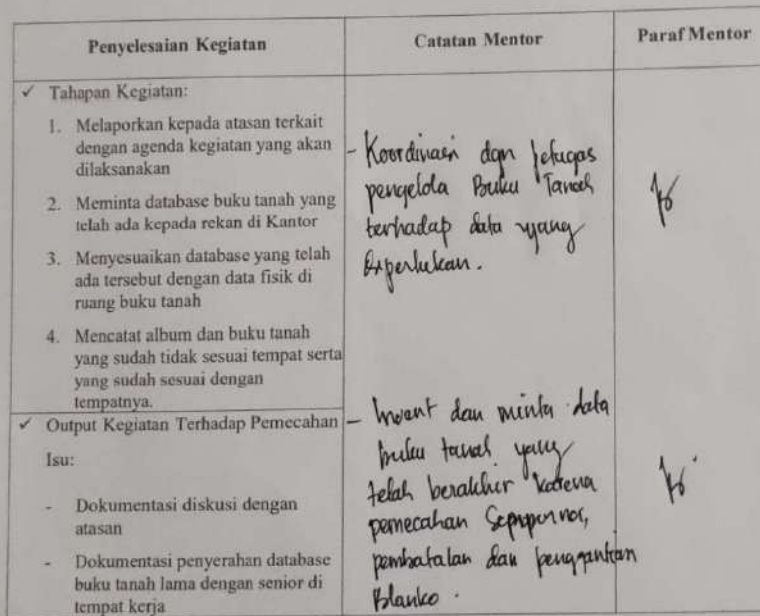 Penyelesaian Kegiatan
Catatan Mentor
Paraf Mentor
✓ Tahapan Kegiatan:
1. Melaporkan kepada atasan terkait
dengan agenda kegiatan yang akan
dilaksanakan
2. Meminta database buku tanah yang
telah ada kepada rekan di Kantor
3. Menyesuaikan database yang telah
ada tersebut dengan data fisik di
ruang buku tanah
4. Mencatat album dan buku tanah
yang sudah tidak sesuai tempat serta
yang sudah sesuai dengan
tempatnya.
- Koordinasi dgn petugas
pengelola Buku Tanah
terhadap data yang
diperlukan.
✓ Output Kegiatan Terhadap Pemecahan
Isu:
- Dokumentasi diskusi dengan
atasan
- Dokumentasi penyerahan database
buku tanah lama dengan senior di
tempat kerja
- Invent dan minta data
buku tanah yang
telah berakhir karena
pemecahan
pembatalan dan penggantian
Blanko.